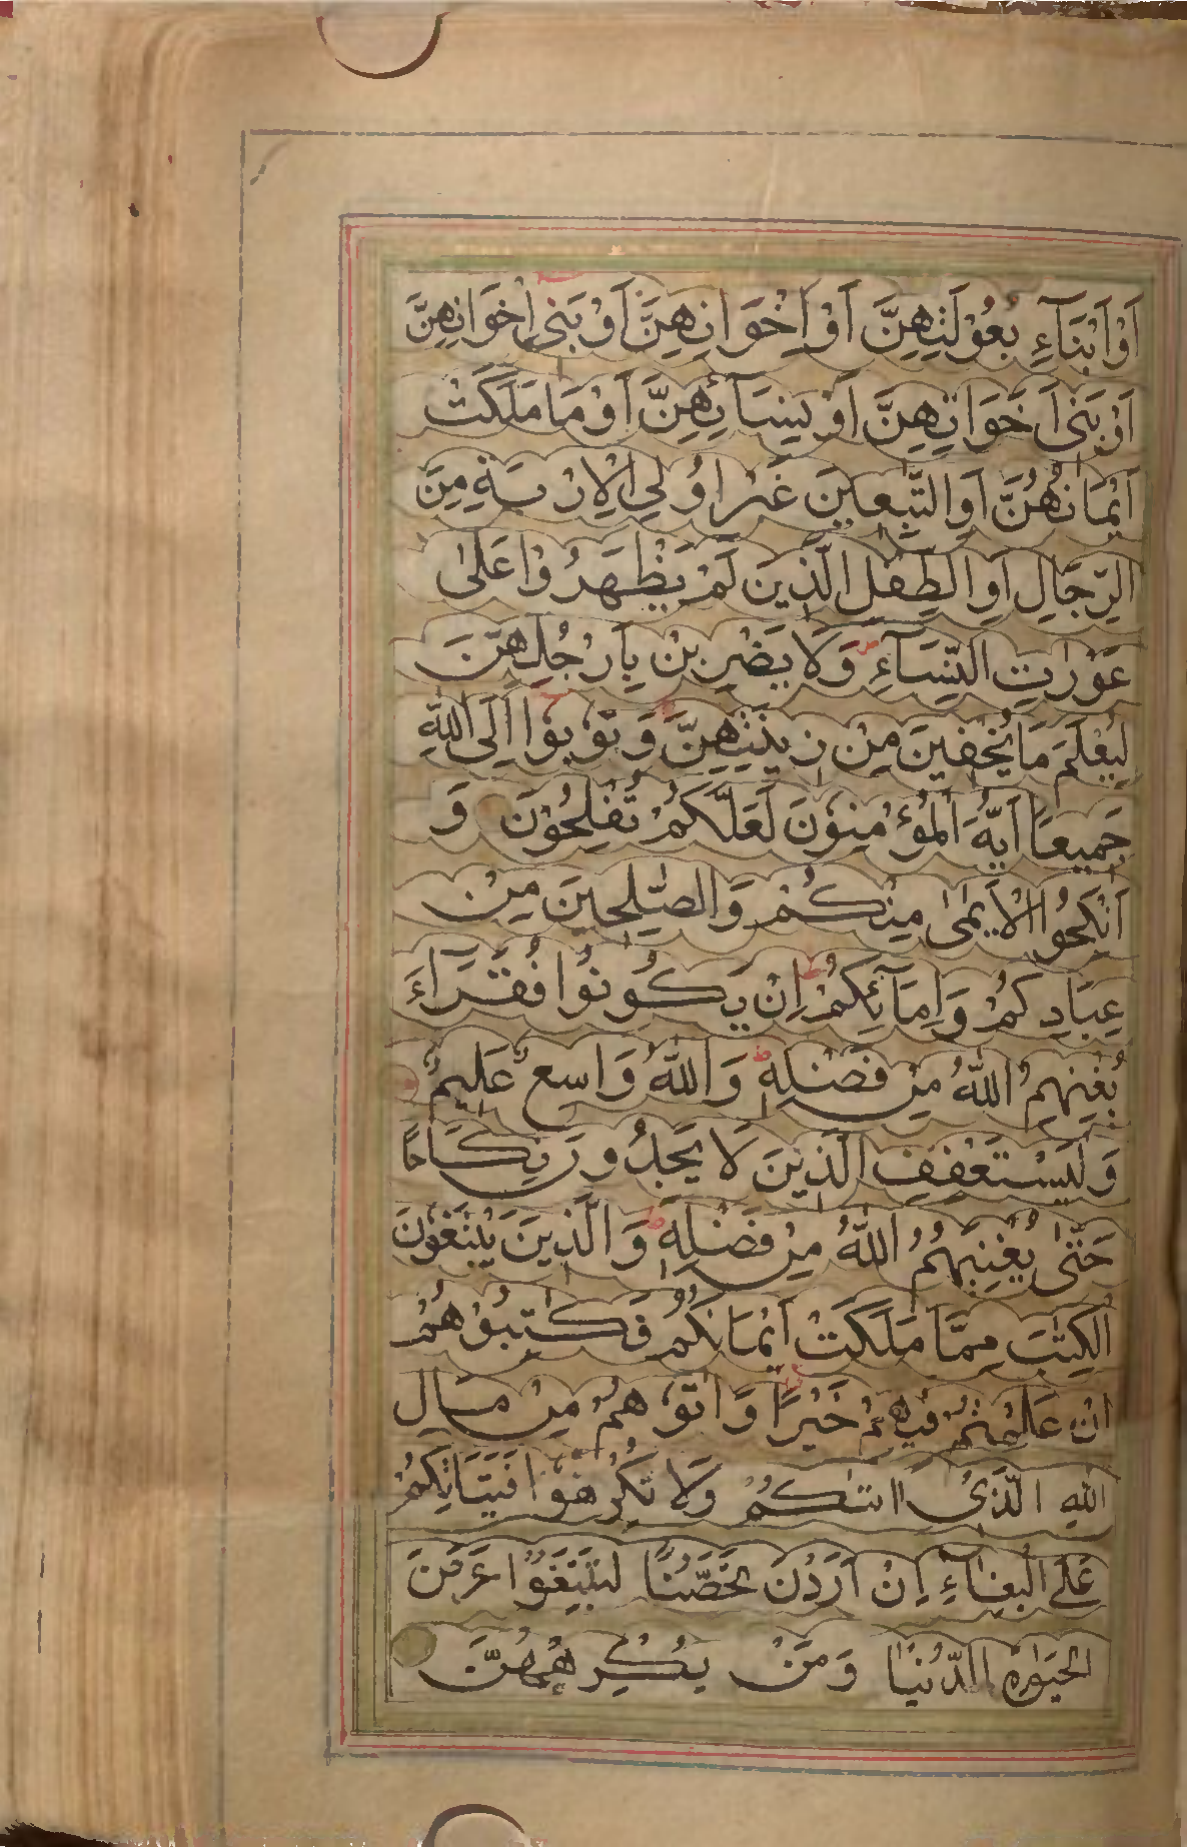 اَوْ اَبْنَآءِ بُعُوْلَتِهِنَّ اَوْ اِخْوَانِهِنَّ اَوْ بَنِي اِخْوَانِهِنَّ
اَوْ بَنِي اَخَوَاتِهِنَّ اَوْ نِسَآئِهِنَّ اَوْ مَا مَلَكَتْ
اَيْمَانُهُنَّ اَوِ التّٰبِعِيْنَ غَيْرِ اُولِي الْاِرْبَةِ مِنَ
الرِّجَالِ اَوِ الطِّفْلِ الَّذِيْنَ لَمْ يَظْهَرُوْا عَلٰى
عَوْرٰتِ النِّسَآءِ ص وَلَا يَضْرِبْنَ بِاَرْجُلِهِنَّ
لِيُعْلَمَ مَا يُخْفِيْنَ مِنْ زِيْنَتِهِنَّ ط وَتُوْبُوْا اِلَى اللّٰهِ
جَمِيعًا اَيُّهَ الْمُؤْمِنُوْنَ لَعَلَّكُمْ تُفْلِحُوْنَ وَ
اَنْكِحُوا الْاَيَمٰى مِنْكُمْ وَالصّٰلِحِيْنَ مِنْ
عِبَادِكُمْ وَاِمَآئِكُمْ ط اِنْ يَكُونُوْا فُقَرَاءَ
يُغْنِهِمُ اللّٰهُ مِنْ فَضْلِهٖ ط وَاللّٰهُ وَاسِعٌ عَلِيمٌ
وَلْيَسْتَعْفِفِ الَّذِيْنَ لَا يَجِدُوْنَ نِكَاحًا
حَتّٰى يُغْنِيَهُمُ اللّٰهُ مِنْ فَضْلِهٖ ط وَالَّذِيْنَ يَبْتَغُوْنَ
الْكِتٰبَ مِمَّا مَلَكَتْ اَيْمَانُكُمْ فَكَاتِبُوْهُمْ
اِنْ عَلِمْتُمْ فِيْهِمْ خَيْرًا وَاٰتُوْهُمْ مِنْ مَالِ
اللّٰهِ الَّذِىْ اٰتٰىكُمْ وَلَا تُكْرِهُوْا فَتَيَاتِكُمْ
عَلَى الْبِغَآءِ اِنْ اَرَدْنَ تَحَصُّنًا لِتَبْتَغُوْا عَرَضَ
الْحَيٰوةِ الدُّنْيَا وَمَنْ يُكْرِهْهُنَّ